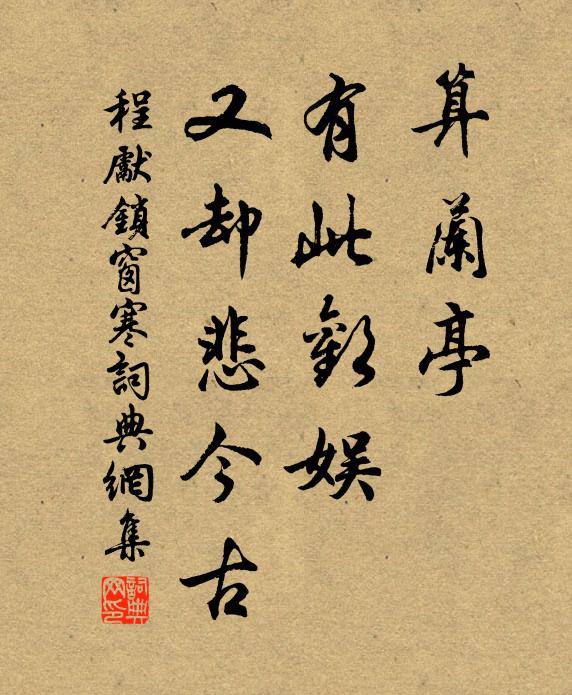 算蘭亭
有此歡娱
又却悲今古
程獻鎖窗寒詞典網集
詞典网印